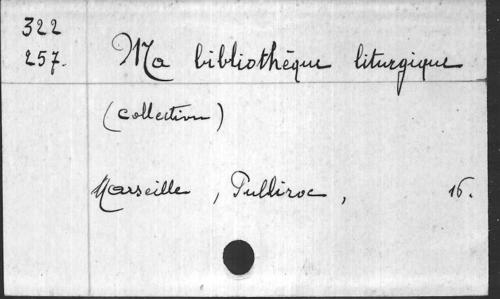 322
257.
Ma bibliothèque liturgique
(collection)
Marseille, Publiroc, 16.